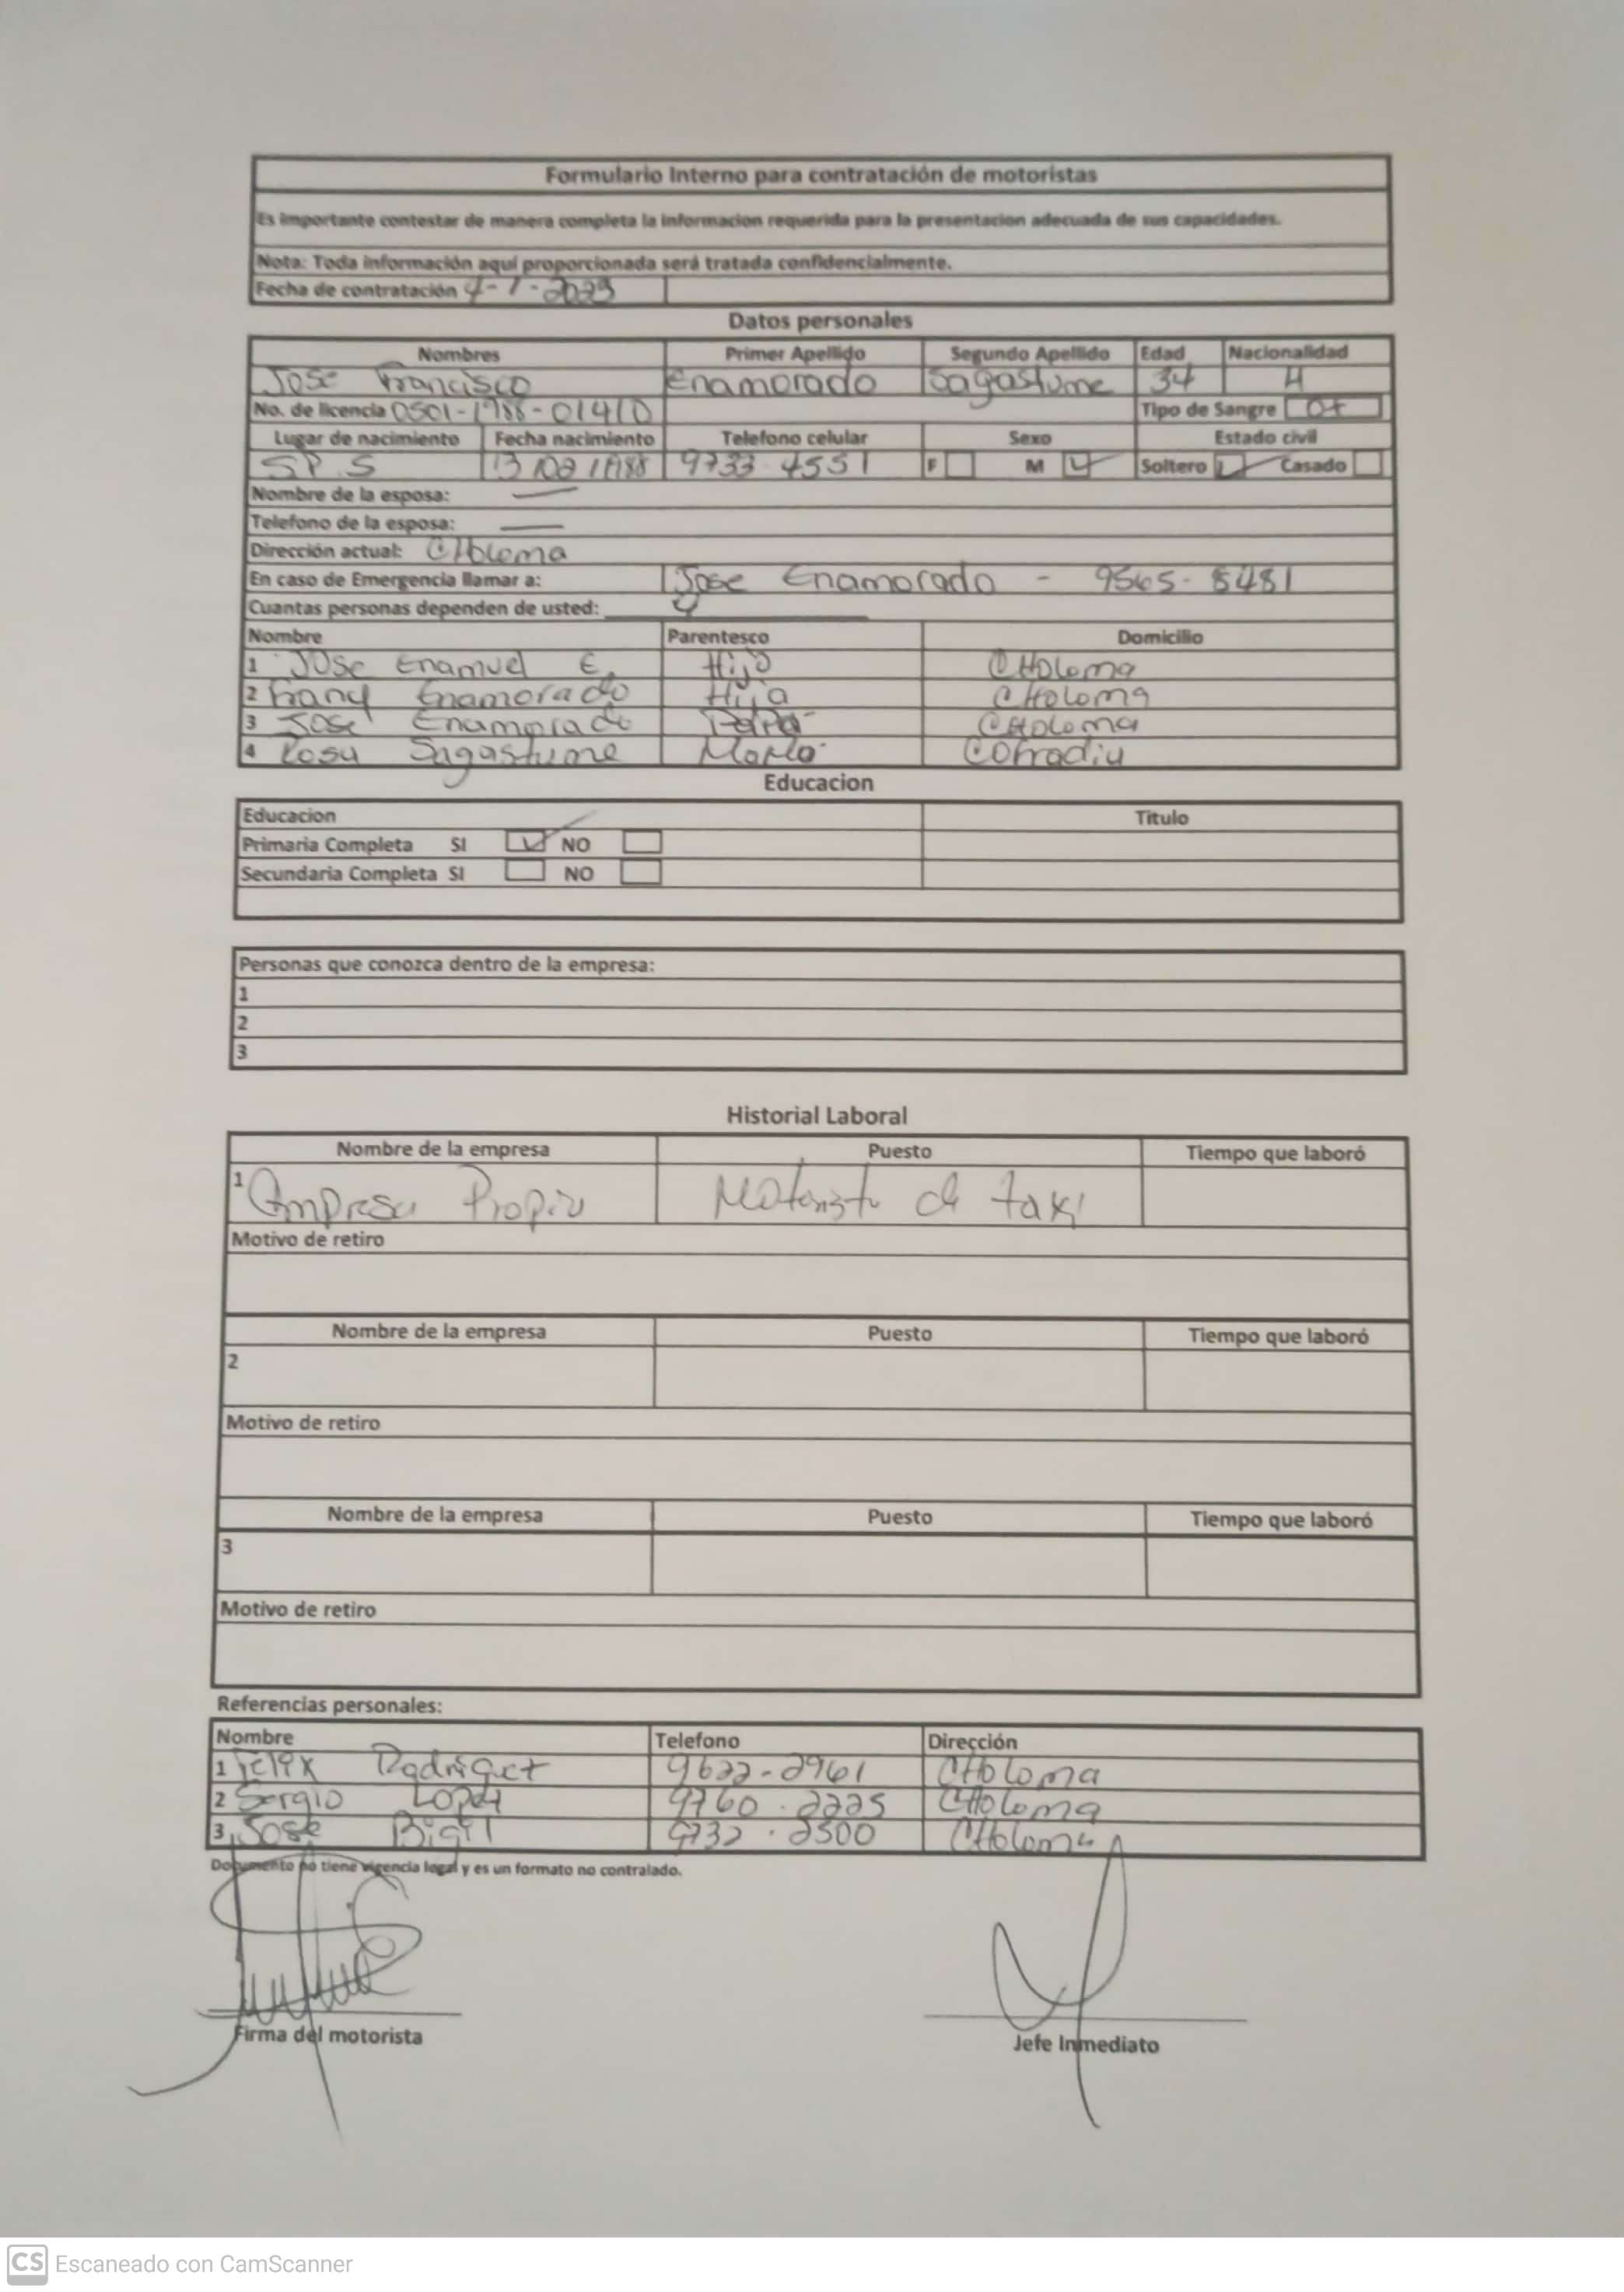 Formulario Interno para contratación de motoristas
Es importante contestar de manera completa la informacion requerida para la presentacion adecuada de sus capacidades.
Nota: Toda información aquí proporcionada será tratada confidencialmente.
Fecha de contratación 4-1-2023
Datos personales
Nombres Primer Apellido Segundo Apellido Edad Nacionalidad
Jose Francisco Enamorado Sagastume 34 H
No. de licencia 0501-1988-01410 Tipo de Sangre O+
Lugar de nacimiento Fecha nacimiento Telefono celular Sexo Estado civil
SP.S 1988 9733-4551 F M Soltero Casado
Nombre de la esposa: —
Telefono de la esposa: —
Dirección actual: CHoloma
En caso de Emergencia llamar a: Jose Enamorado - 9565-8481
Cuantas personas dependen de usted: 4
Nombre Parentesco Domicilio
1 Jose Enamuel E. Hijo CHoloma
2 Enamorado Hija CHoloma
3 Jose Enamorado Papá CHoloma
4 Rosa Sagastume Mamá Cofradia
Educacion
Educacion Titulo
Primaria Completa SI NO
Secundaria Completa SI NO
Personas que conozca dentro de la empresa:
1
2
3
Historial Laboral
Nombre de la empresa Puesto Tiempo que laboró
1 Empresa Propia Motorista de taxi
Motivo de retiro
Nombre de la empresa Puesto Tiempo que laboró
2
Motivo de retiro
Nombre de la empresa Puesto Tiempo que laboró
3
Motivo de retiro
Referencias personales:
Nombre Telefono Dirección
1 Felix Rodriguez 9622-2961 CHoloma
2 Sergio Lopez 9760-2225 CHoloma
3 Jose 9732-2500 CHoloma
Documento no tiene vigencia legal y es un formato no contralado.
Firma del motorista Jefe Inmediato
CS Escaneado con CamScanner